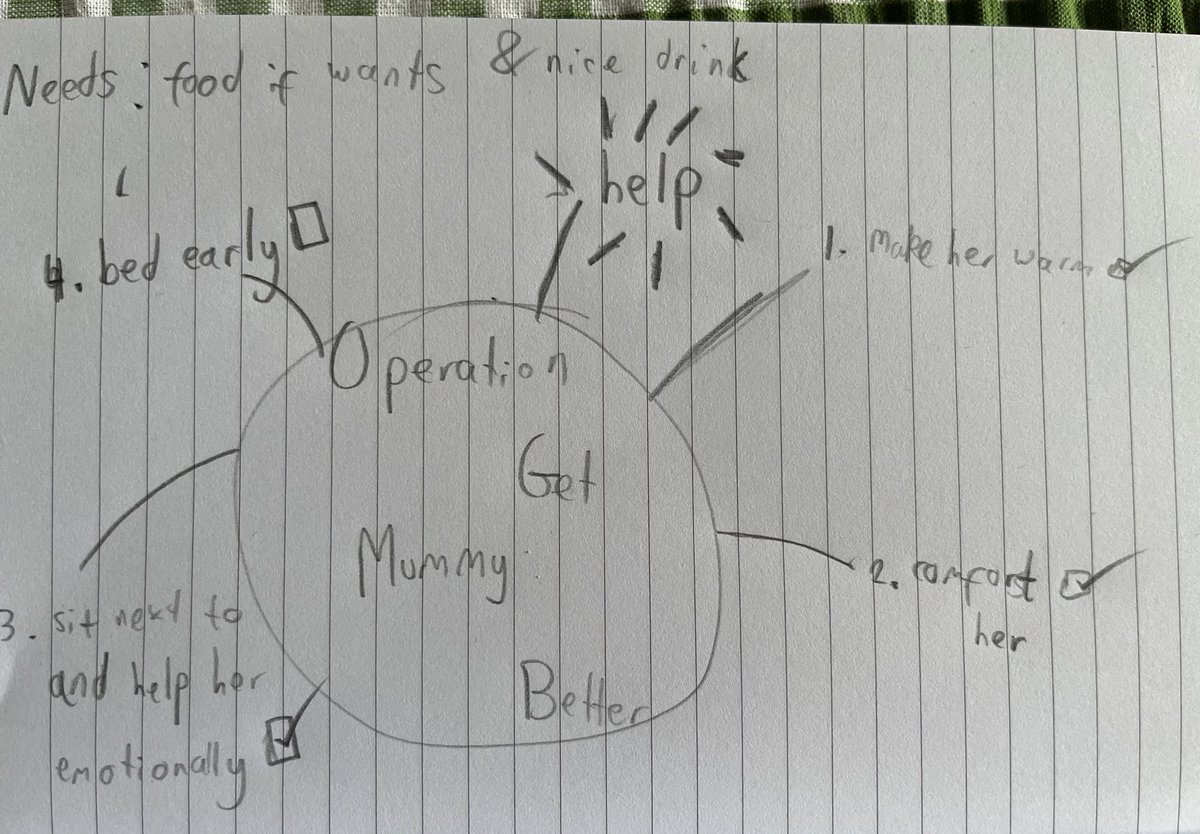 Needs: food if wants & nice drink
help
1. make her warm
4. bed early
Operation
Get
Mummy
Better
2. comfort
her
3. sit next to
and help her
emotionally